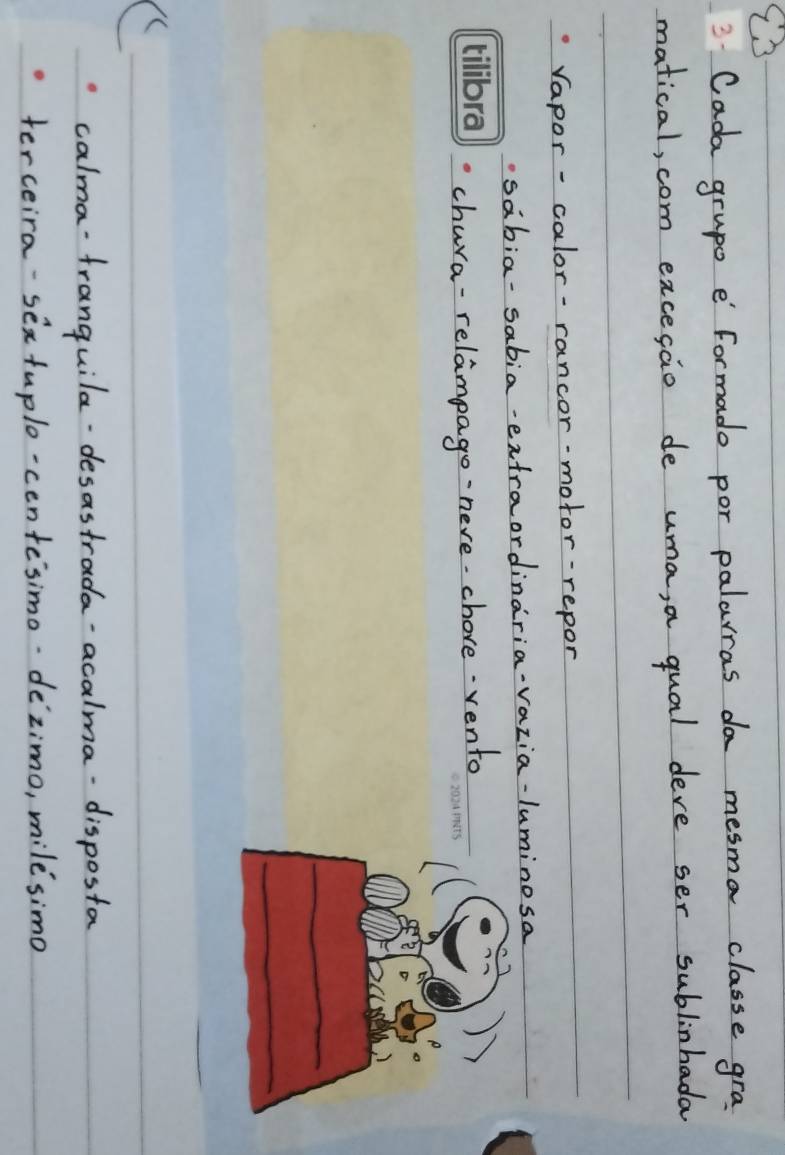 3- Cada grupo é formado por palavras da mesma classe gra-
matical, com exceção de uma, a qual deve ser sublinhada
• vapor - calor - rancor - motor - repor
• sábia - sabia - extraordinária - vazia - luminosa
tilibra
• chuva - relâmpago - neve - chove - vento
© 2024 PNTS
• calma - tranquila - desastrada - acalma - disposta
• terceira - sêxtuplo - centésimo - dézimo, milésimo